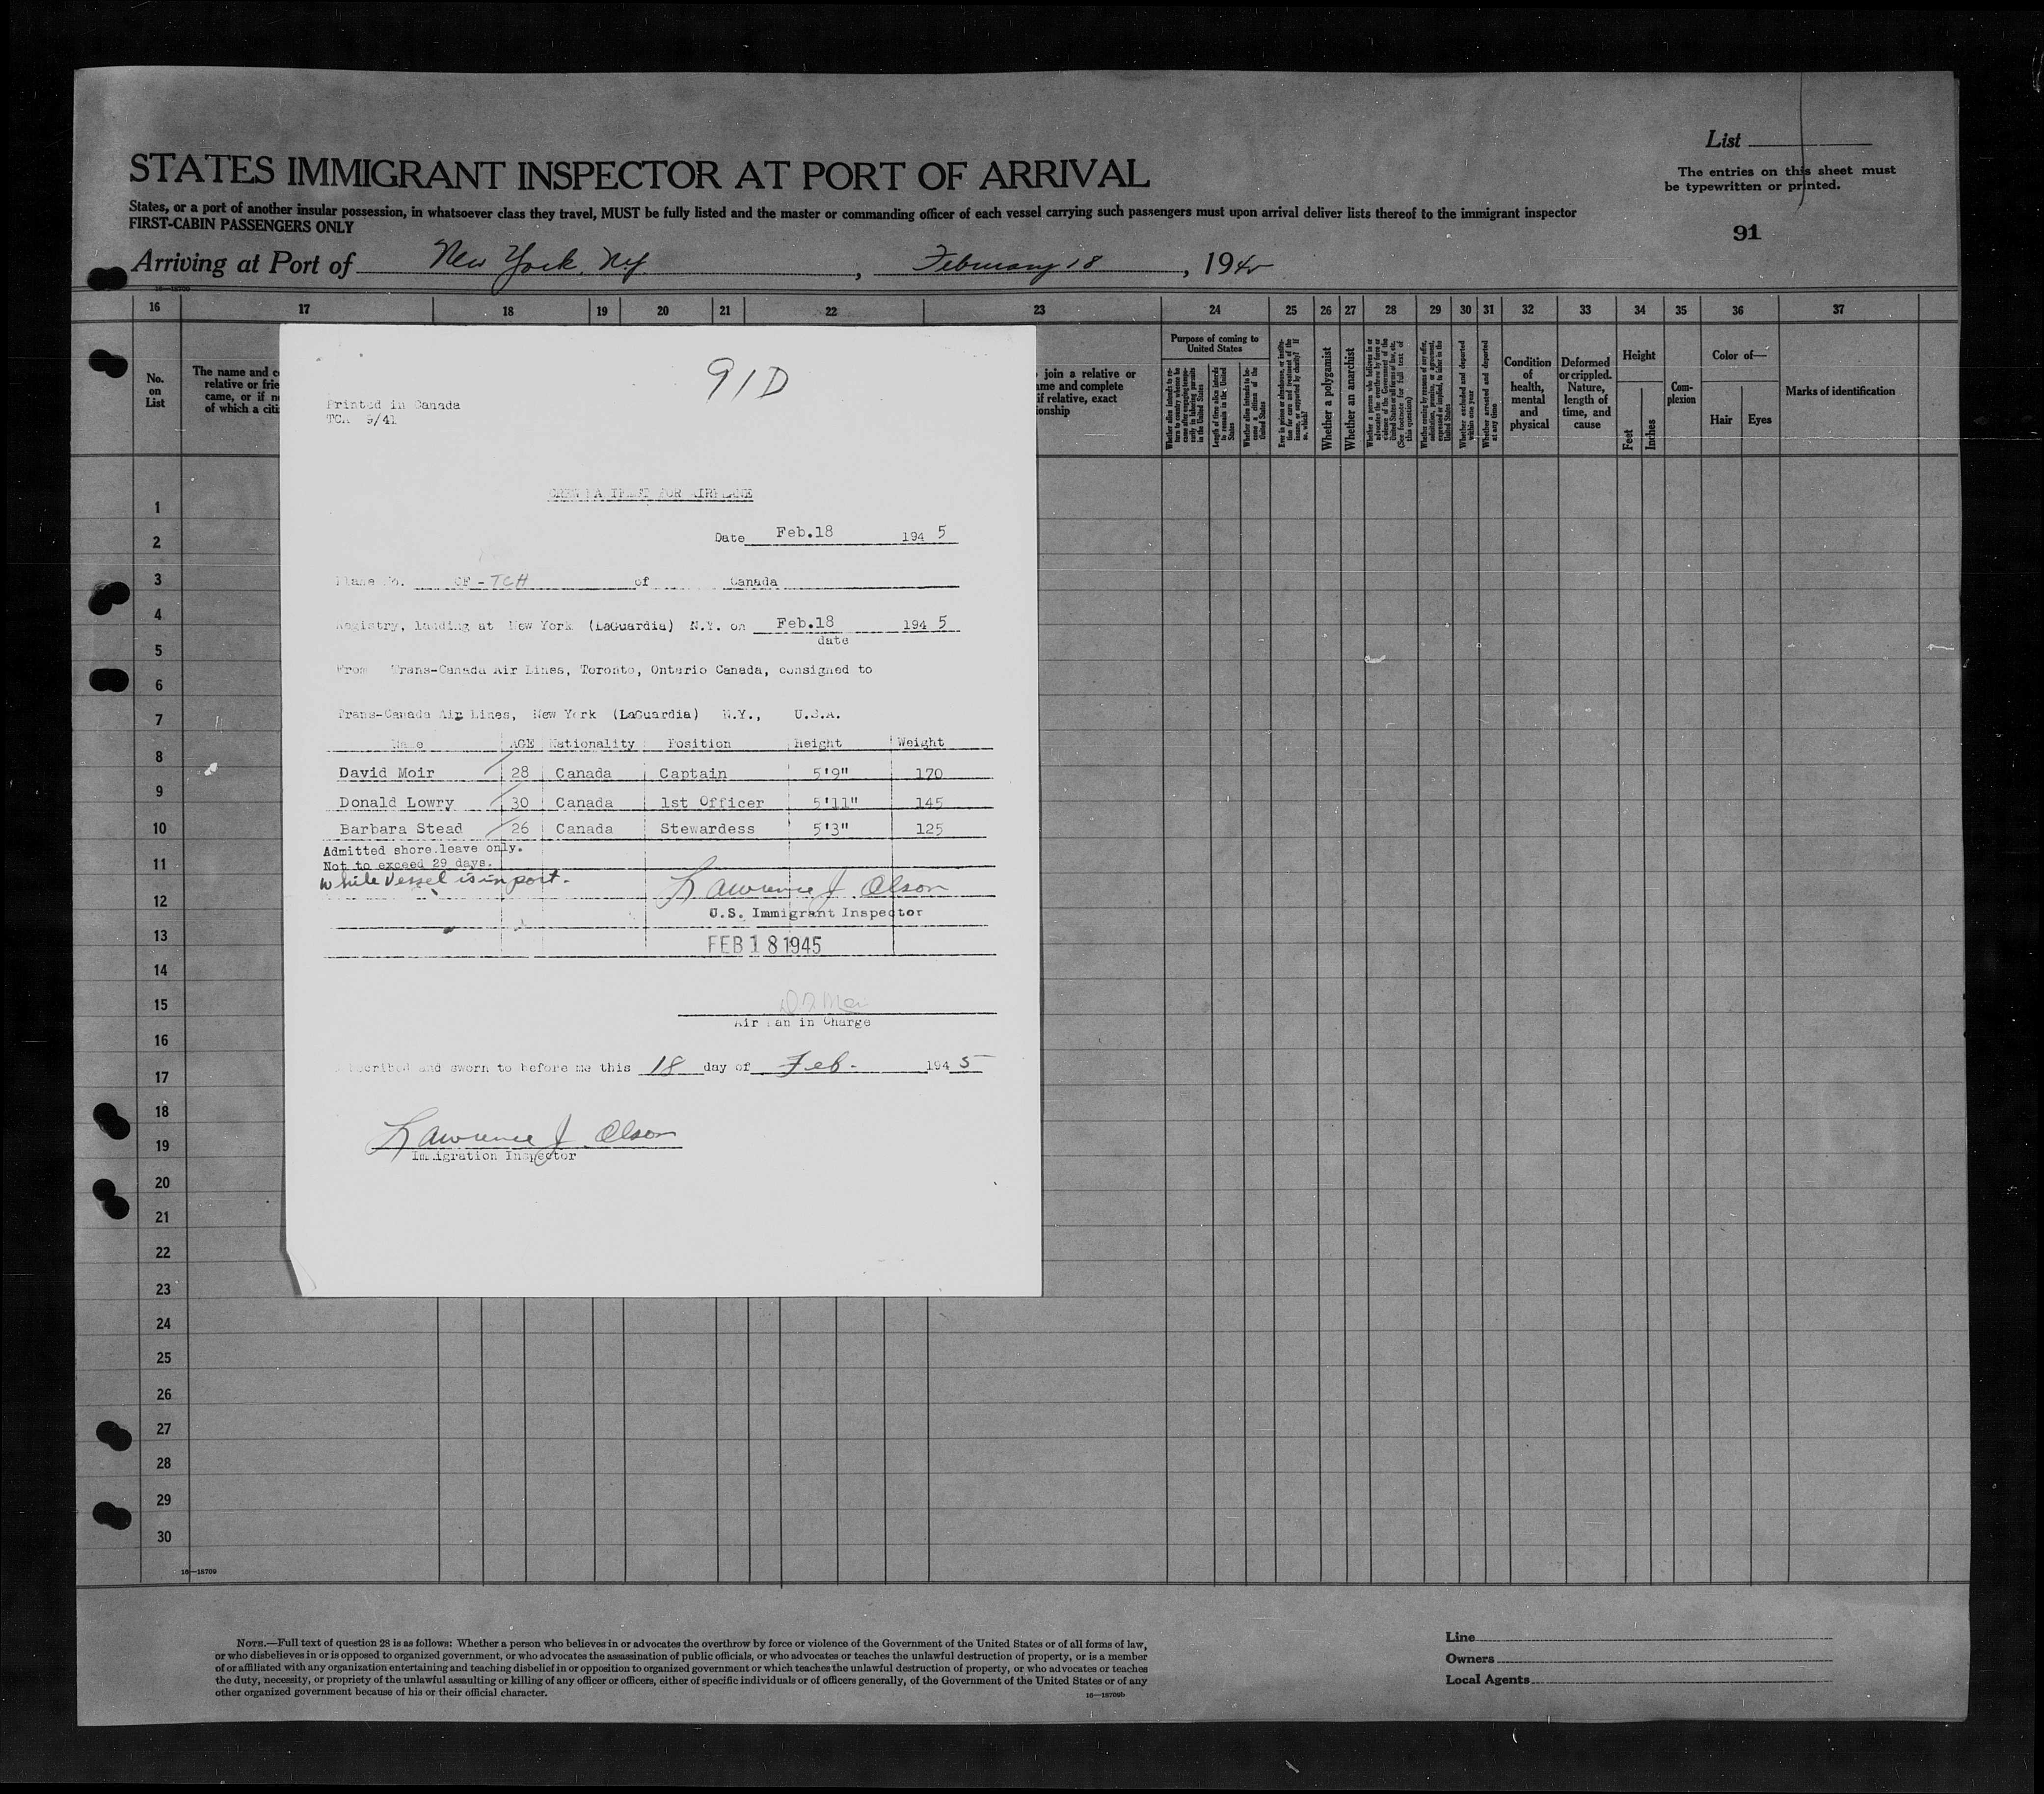 List
STATES IMMIGRANT INSPECTOR AT PORT OF ARRIVAL
The entries on this sheet must
be typewritten or printed.
States, or a port of another insular possession, in whatsoever class they travel, MUST be fully listed and the master or commanding officer of each vessel carrying such passengers must upon arrival deliver lists thereof to the immigrant inspector
FIRST-CABIN PASSENGERS ONLY
91
Arriving at Port of New York, N.Y. , February 18 , 194
16 17 18 19 20 21 22 23 24 25 26 27 28 29 30 31 32 33 34 35 36 37
No. on List
The name and c
relative or frie
came, or if n
of which a citi
join a relative or
ame and complete
if relative, exact
ionship
Purpose of coming to
United States
Length of time alien intends
to remain in the United
States
Whether a polygamist
Whether an anarchist
Whether excluded and deported
within one year
Whether arrested and deported
at any time
Condition
of
health,
mental
and
physical
Deformed
or crippled.
Nature,
length of
time, and
cause
Height
Feet
Inches
Com-
plexion
Color of—
Hair
Eyes
Marks of identification
91D
Printed in Canada
TCA 9/41
CREW MANIFEST FOR AIRPLANE
Date Feb.18 194 5
Plane No. CF-TCH of Canada
Registry, landing at New York (LaGuardia) N.Y. on Feb.18 194 5
date
From Trans-Canada Air Lines, Toronto, Ontario Canada, consigned to
Trans-Canada Air Lines, New York (LaGuardia) N.Y., U.S.A.
Name AGE Nationality Position Height Weight
David Moir 28 Canada Captain 5'9" 170
Donald Lowry 30 Canada 1st Officer 5'11" 145
Barbara Stead 26 Canada Stewardess 5'3" 125
Admitted shore leave only.
Not to exceed 29 days.
while vessel is in port.
Lawrence J. Olson
U.S. Immigrant Inspector
FEB 18 1945
Air Man in Charge
Subscribed and sworn to before me this 18 day of Feb. 194 5
Lawrence J. Olson
Immigration Inspector
1
2
3
4
5
6
7
8
9
10
11
12
13
14
15
16
17
18
19
20
21
22
23
24
25
26
27
28
29
30
16—18709
NOTE.—Full text of question 28 is as follows: Whether a person who believes in or advocates the overthrow by force or violence of the Government of the United States or of all forms of law,
or who disbelieves in or is opposed to organized government, or who advocates the assassination of public officials, or who advocates or teaches the unlawful destruction of property, or is a member
of or affiliated with any organization entertaining and teaching disbelief in or opposition to organized government or which teaches the unlawful destruction of property, or who advocates or teaches
the duty, necessity, or propriety of the unlawful assaulting or killing of any officer or officers, either of specific individuals or of officers generally, of the Government of the United States or of any
other organized government because of his or their official character.
16—18709b
Line
Owners
Local Agents